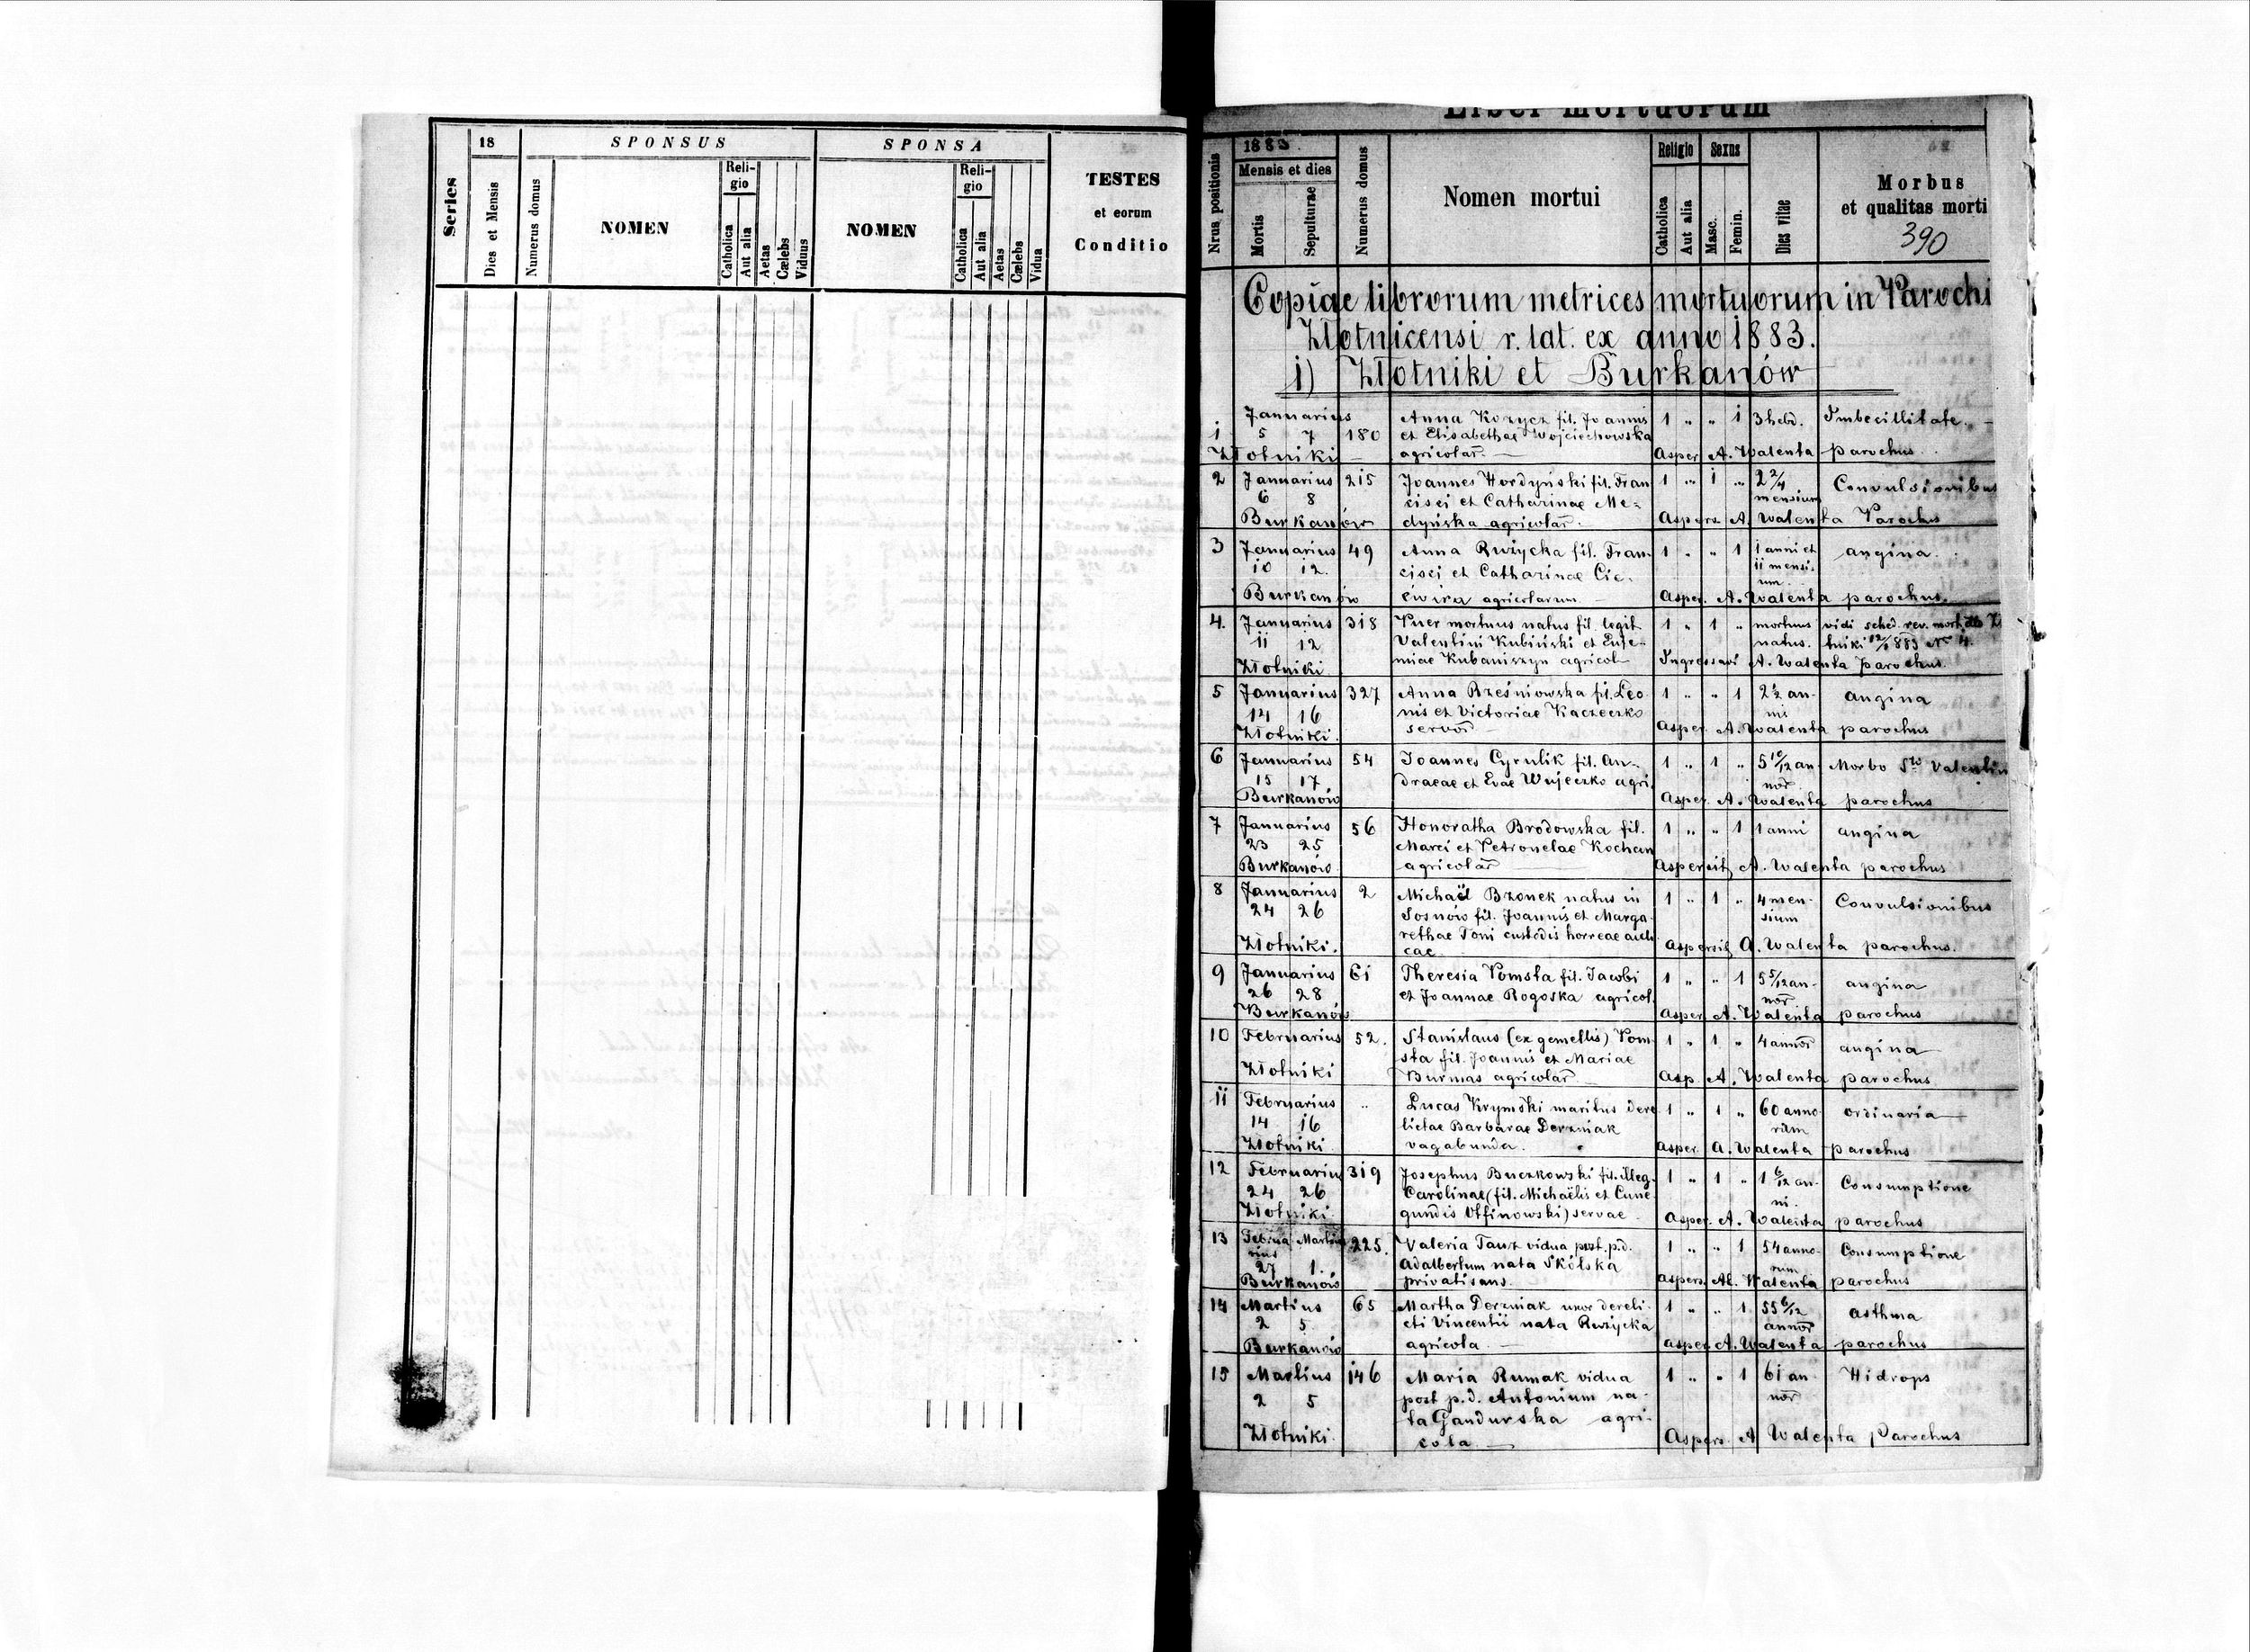 18
SPONSUS
SPONSA
Series
Dies et Mensis
Numerus domus
NOMEN
Religio
Catholica
Aut alia
Aetas
Cælebs
Viduus
NOMEN
Religio
Catholica
Aut alia
Aetas
Cælebs
Vidua
TESTES
et eorum
Conditio
Liber mortuorum
Nrus positionis
1883.
Mensis et dies
Mortis
Sepulturae
Numerus domus
Nomen mortui
Religio
Catholica
Aut alia
Sexus
Masc.
Femin.
Dies vitae
Morbus
et qualitas morti
390
Copiae librorum metrices mortuorum in Parochi
Złotnicensi r. lat. ex anno 1883.
1) Złotniki et Burkanów
Januarius Anna Kozycz fil. Joannis 1 " " 1 3 hebd. Imbecillitate.
1 5 7 180 et Elisabethae Wojciechowska
Złotniki agricolar. Asper. A. Walenta parochus.
2 Januarius 215 Joannes Hordyński fil. Fran 1 " 1 " 2 2/4 Convulsionibus
6 8 cisci et Catharinae Me- mensium
Burkanów dyńska agricolar. Aspers. A. Walenta Parochus
3 Januarius 49 Anna Rużycka fil. Fran- 1 " " 1 1 anni et angina.
10 12. cisci et Catharinae Cie- 11 mensi-
um
Burkanów ćwirz agricolarum. Asper. A. Walenta parochus.
4. Januarius 318 Puer mortuus natus fil. legit 1 " 1 " mortuus vidi sched. rev. mort.
11 12 Valentini Kubiński et Eufe- natus. tniki 12/1 883 No 4.
Złotniki miae Kubaniszyn agricol Ingressavi A. Walenta parochus.
5 Januarius 327 Anna Brześniowska fil. Leo 1 " " 1 2 1/2 an- angina
14 16 nis et Victoriae Kaczeczko ni
Złotniki. servor Asper. A. Walenta parochus
6 Januarius 54 Joannes Cyrulik fil. An- 1 " 1 " 5 10/12 an- Morbo Sto Valentin
15 17 draeae et Evae Wujeczko agri. nor
Burkanów Asper. A. Walenta parochus
7 Januarius 56 Honoratha Brodowska fil. 1 " " 1 1 anni angina
23 25 Marci et Petronelae Kochan
Burkanów agricolar Aspersit A. Walenta parochus
8 Januarius 2 Michaël Bzonek natus in 1 " 1 " 4 men- Convulsionibus
24 26 Sosnów fil. Joannis et Marga- sium
Złotniki. rethae Toni custodis horreae auli Aspersit A. Walenta parochus.
cae.
9 Januarius 61 Theresia Pomsta fil. Jacobi 1 " " 1 5 5/12 an- angina
26 28 et Joannae Rogoska agricol. nor
Burkanów Asper. A. Walenta parochus
10 Februarius 52. Stanislaus (ex gemellis) Pom- 1 " 1 " 4 annor angina
sta fil. Joannis et Mariae
Złotniki Burmas agricolar Asp. A. Walenta parochus
11 Februarius " Lucas Krymski maritus dere 1 " 1 " 60 anno- ordinaria
14 16 lictae Barbarae Derzniak rum
Złotniki. vagabunda. Asper. A. Walenta parochus
12 Februarius 319 Josephus Buczkowski fil. illeg. 1 " 1 " 1 6/12 an- Consumptione
24 26 Carolinae (fil. Michaëlis et Cune ni.
Złotniki. gundis Utfinowski) servae Asper. A. Walenta parochus
13 Februa Martius 225. Valeria Tanz vidua post. p.d. 1 " " 1 54 anno- Consumptione
rius
27 1. Adalbertum nata Skólska rum
Burkanów privatisans. Aspers. A. Walenta parochus
14 Martius 65 Martha Derzniak uxor dereli- 1 " " 1 55 6/12 asthma
2 5 cti Vincentii nata Rużycka annor
Burkanów agricola. Asper. A. Walenta parochus
15 Martius 146 Maria Rumak vidua 1 " " 1 61 an Hidrops
2 5 post p.d. Antonium na- nor
Złotniki. ta Gandurska agri-
cola. Aspers. A Walenta Parochus